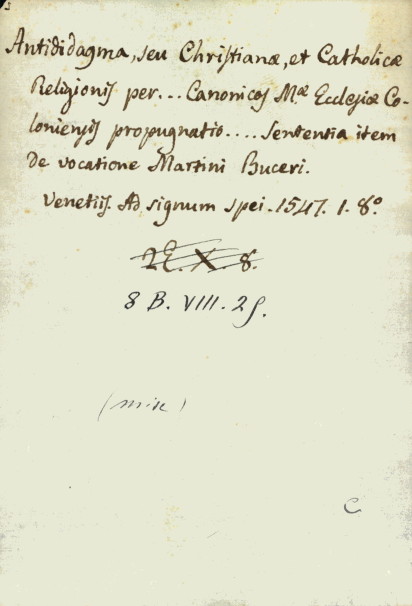 Antididagma, seu Christianæ, et Catholicæ
Religionis per... Canonicos Mæ Ecclesiæ Co-
loniensis propugnatio.... Sententia item
de vocatione Martini Buceri.
Venetiis. Ad signum spei. 1547. 1. 8º
2E. X. 8.
8 B. VIII. 25.
(misc)
C.